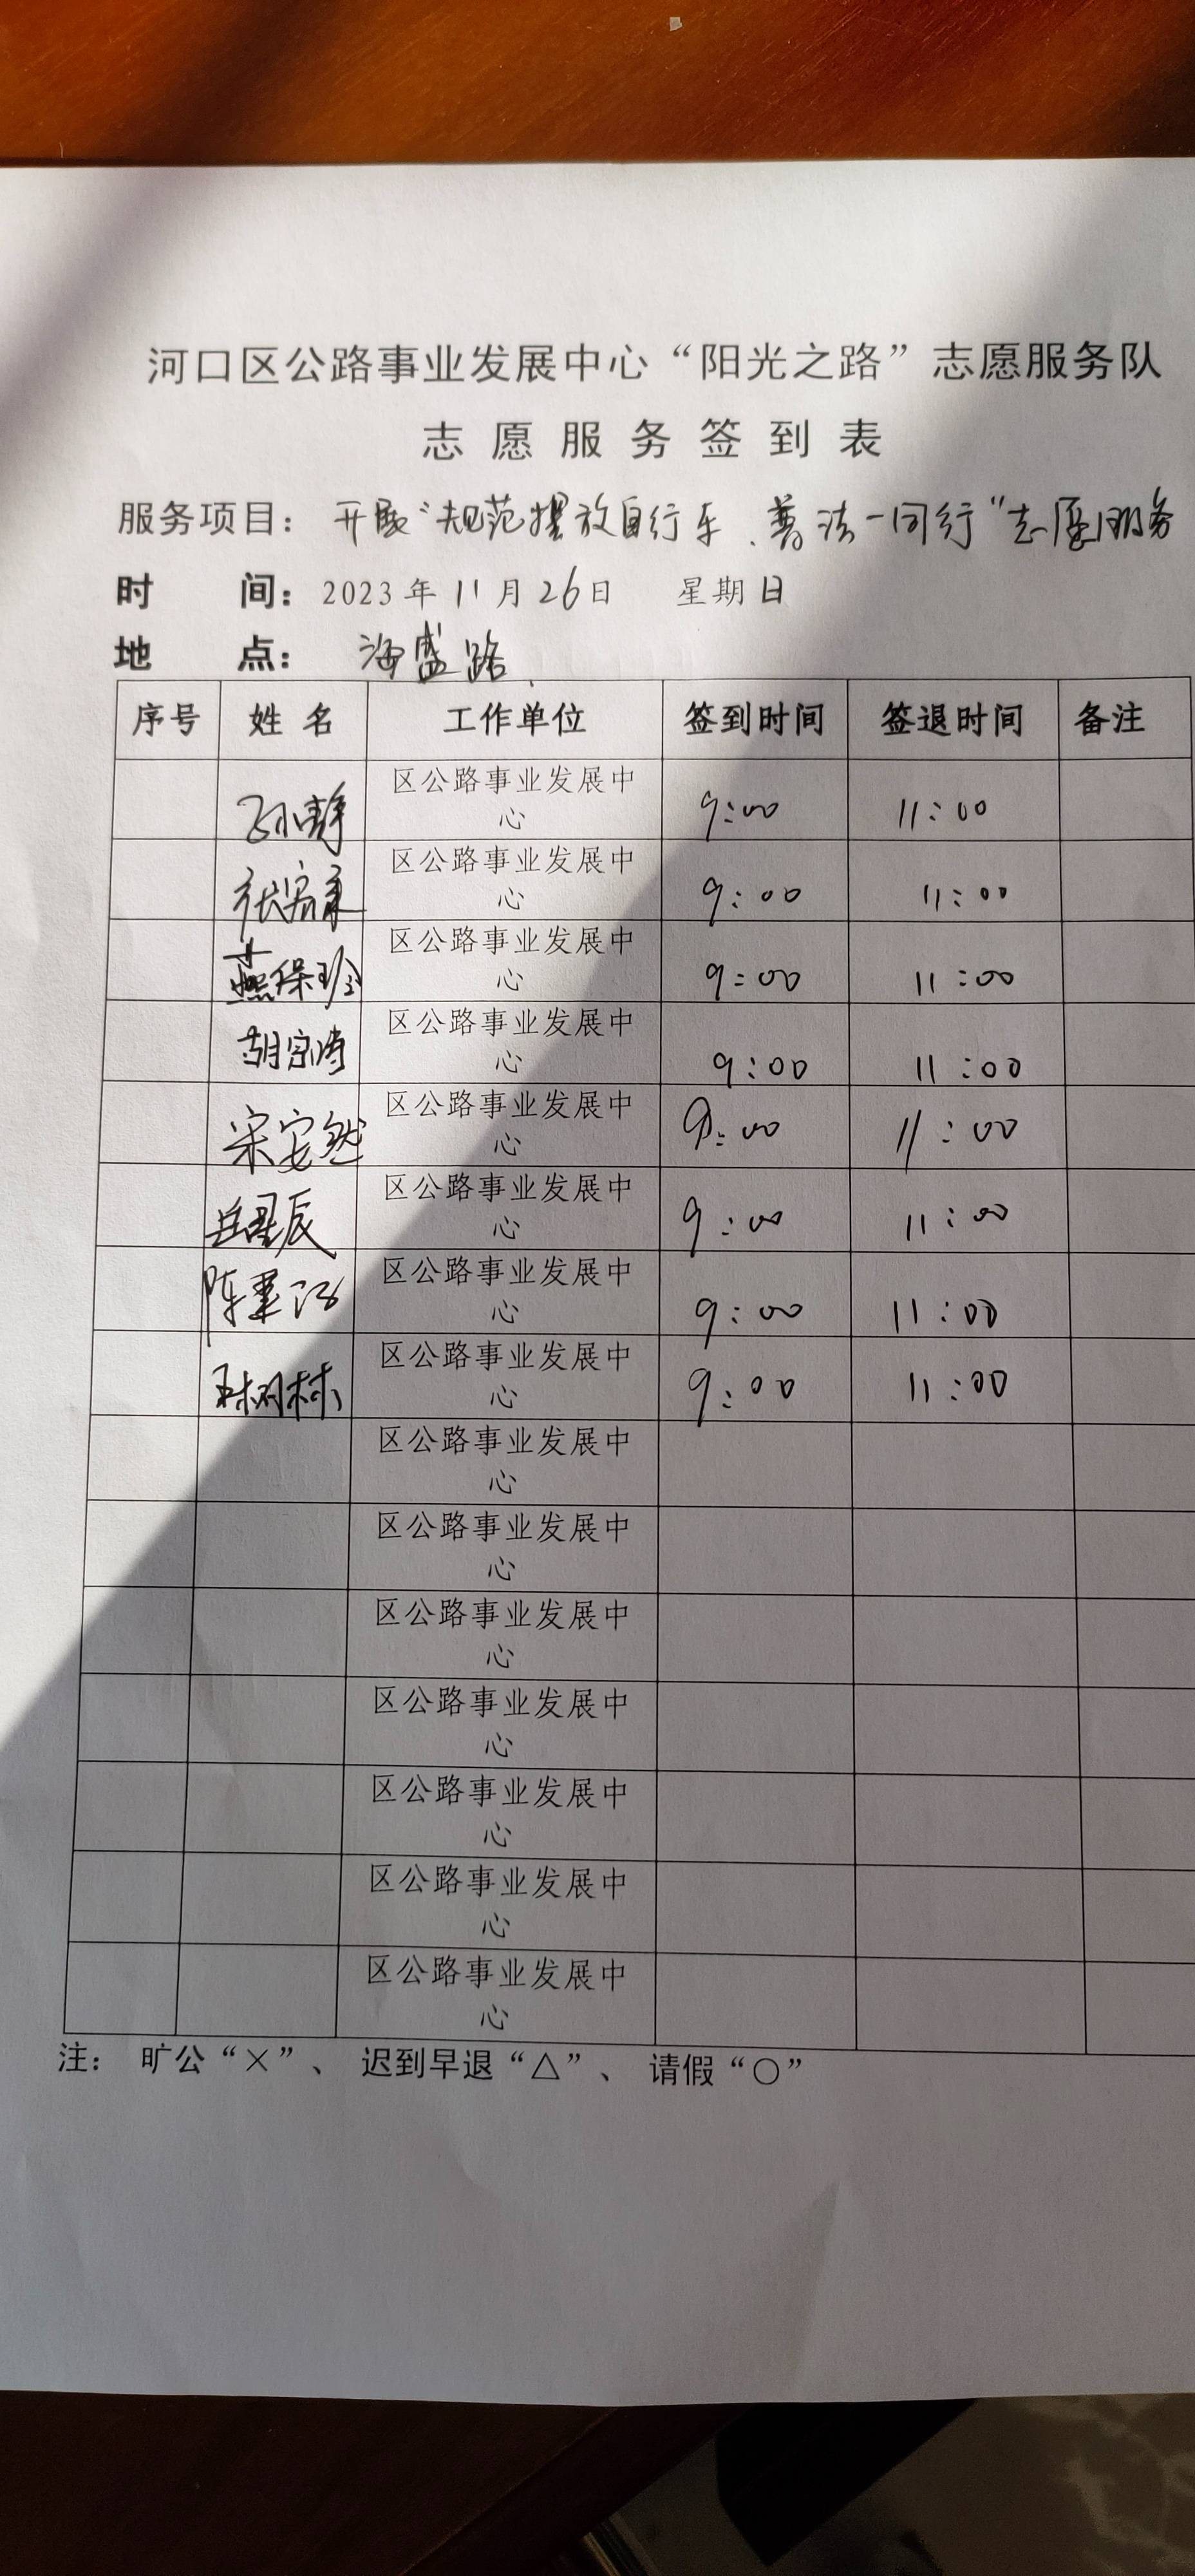 河口区公路事业发展中心“阳光之路”志愿服务队
志愿服务签到表
服务项目： 开展“规范摆放自行车、普法一同行”志愿服务
时 间： 2023年11月26日 星期日
地 点： 海盛路
序号 姓名 工作单位 签到时间 签退时间 备注
孙静 区公路事业发展中心 9:00 11:00
区公路事业发展中心 9:00 11:00
燕保珍 区公路事业发展中心 9:00 11:00
胡宗涛 区公路事业发展中心 9:00 11:00
宋安然 区公路事业发展中心 9:00 11:00
丘星辰 区公路事业发展中心 9:00 11:00
区公路事业发展中心 9:00 11:00
王树村 区公路事业发展中心 9:00 11:00
区公路事业发展中心
区公路事业发展中心
区公路事业发展中心
区公路事业发展中心
区公路事业发展中心
区公路事业发展中心
区公路事业发展中心
注： 旷公“×”、 迟到早退“△”、 请假“○”